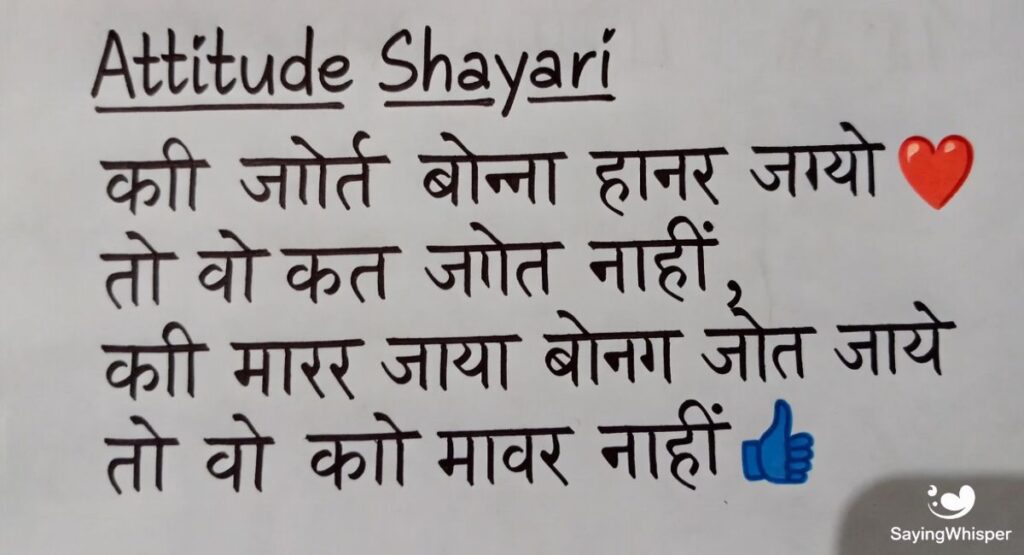 Attitude Shayari
काी जाोर्त बोन्ना हानर जग्यो ❤️
तो वो कत जाोत नाहीं,
काी मारर जाया बोनग जोत जाये
तो वो काो मावर नाहीं 👍
SayingWhisper